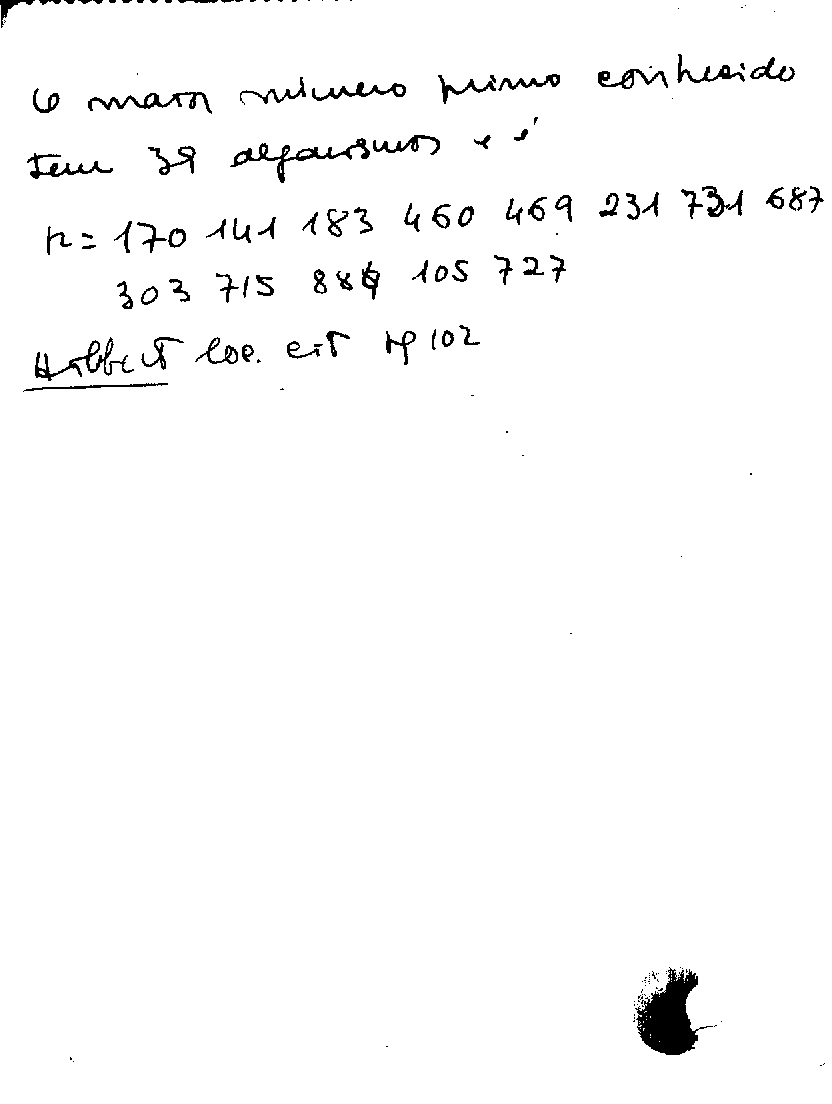 O maior número primo conhecido
tem 39 algarismos e é
n = 170 141 183 460 469 231 731 687
303 715 884 105 727
Hilbert loc. cit pg 102